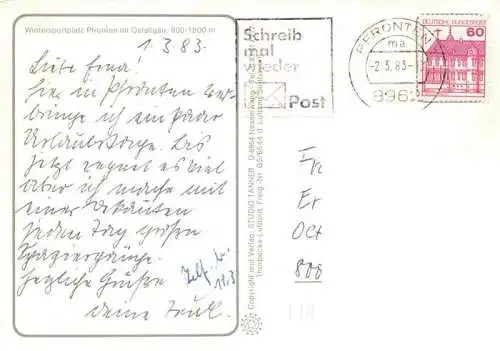 Wintersportplatz Pfronten im Ostallgäu, 800-1200 m
1.3.83.
Liebe Erna!
Hier in Pfronten ver-
bringe ich ein paar
Urlaubstage. Bis
jetzt regnet es viel
aber ich mache mit
einer Bekannten
jeden Tag große
Spaziergänge.
Herzliche Grüße
Deine Trudl.
11.3
Copyright und Verlag: STUDIO TANNER D-8964 Nesselwang
Thorbecke-Luftbild, Freig.-Nr. G5/8644 d. Luftamt Südbayern
Schreib
mal
wieder
Post
PFRONTEN
ma
-2.3.83-
8962
DEUTSCHE BUNDESPOST
60
Fr
Er
Oct
800